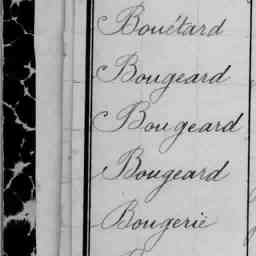 Bouétard
Bougeard
Bougeard
Bougeard
Bougerie